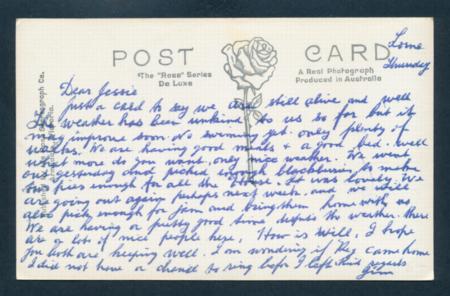 Lorne
Thursday
POST CARD
"The "Rose" Series
De Luxe
A Real Photograph
Produced in Australia
Dear Jessie
Just a card to say we are still alive and well
The weather has been unkind to us so far but it
may improve soon. No swimming yet. only plenty of
walks. We are having good meals & a good bed. well
what more do you want, only nice weather. We went
out yesterday and picked enough blackberries to make
pies enough for all the house. it was lovely. We
are going out again perhaps next week. and we will
all pick enough for Jam and bring them home with us
We are having a pretty good time despite the weather. there
are a lot of nice people here, How is Will, I hope
you both are keeping well. I am wondering if they came home
I did not have a chance to ring before I left Kind regards